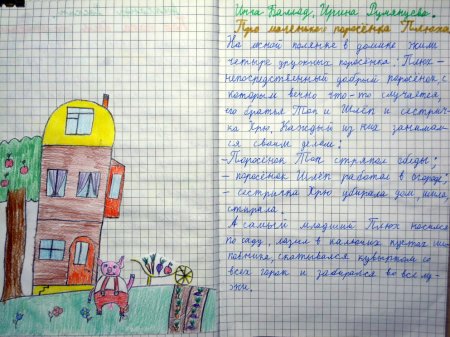 Инна Баллод, Ирина Румянцева.
Про маленького поросёнка Плюха
На лесной полянке в домике жили
четыре дружных поросёнка: Плюх -
непосредственный добрый поросёнок, с
которым вечно что-то случается,
его братья Топ и Шлёп и сестрич-
ка Хрю. Каждый из них занимал-
ся своим делом:
- Поросёнок Топ стряпал обеды;
- поросёнок Шлёп работал в огороде;
- сестричка Хрю убирала дом, шила,
стирала.
А самый младший Плюх носился
по саду, лазил в колючих кустах ши-
повника, скатывался кувырком со
всех горок и забирался во все лу-
жи.